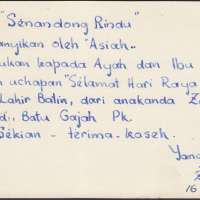 "Senandong Rindu"
anyikan oleh "Asiah..
ukan kapada Ayah dan Ibu
n uchapan "Selamat Hari Raya
Lahir Batin, dari anakanda Z
di, Batu Gajah Pk.
Sekian - terima-kaseh.
Yang
16